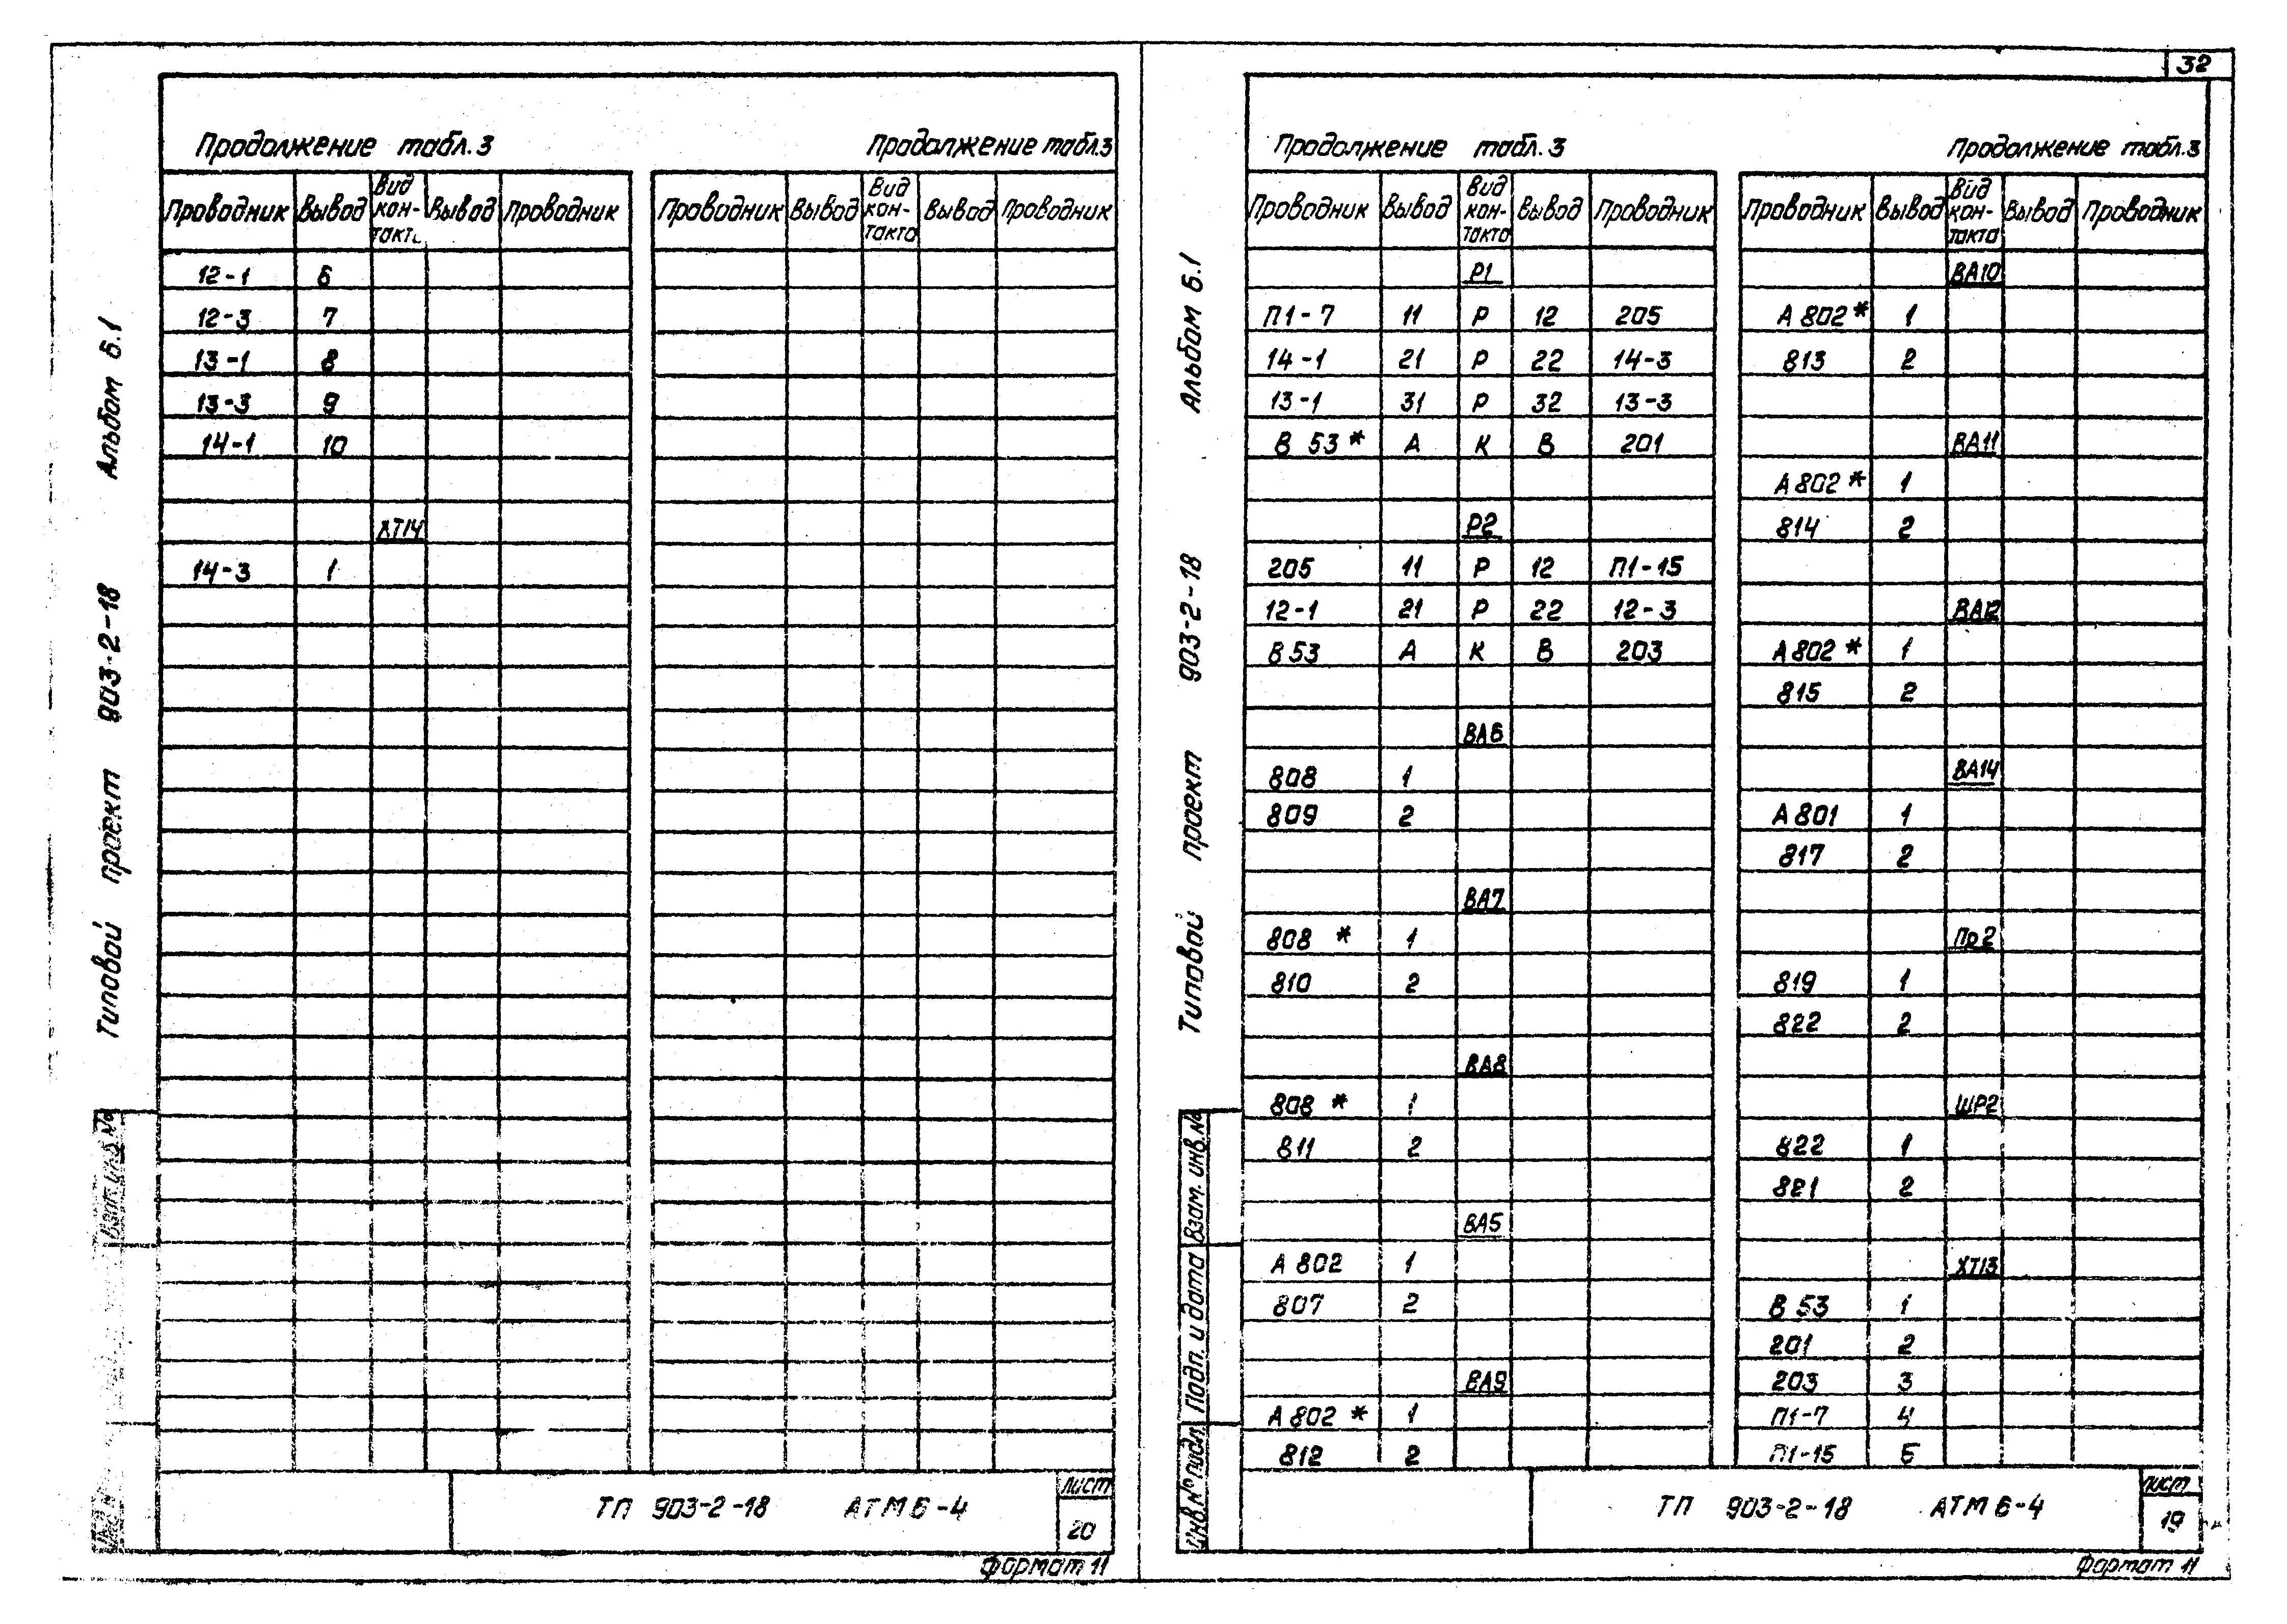 32
Продолжение табл.3
Продолжение табл.3
Проводник Вывод Вид кон- такта Вывод Проводник
Проводник Вывод Вид кон- такта Вывод Проводник
12-1 6
12-3 7
13-1 8
13-3 9
14-1 10
ХТ14
14-3 1
Альбом 6.1
Типовой проект 903-2-18
Взам. инв.№
ТП 903-2-18 АТМ6-4
Лист
20
Формат 11
Продолжение табл.3
Продолжение табл.3
Проводник Вывод Вид кон- такта Вывод Проводник
Р1
П1-7 11 Р 12 205
14-1 21 Р 22 14-3
13-1 31 Р 32 13-3
В 53* А К В 201
Р2
205 11 Р 12 П1-15
12-1 21 Р 22 12-3
В53 А К В 203
ВА6
808 1
809 2
ВА7
808 * 1
810 2
ВА8
808 * 1
811 2
ВА5
А 802 1
807 2
ВА9
А 802 * 1
812 2
Проводник Вывод Вид кон- такта Вывод Проводник
ВА10
А 802* 1
813 2
ВА11
А 802 * 1
814 2
ВА12
А 802 * 1
815 2
ВА14
А 801 1
817 2
Пр2
819 1
822 2
ШР2
822 1
821 2
ХТ13
В 53 1
201 2
203 3
П1-7 4
П1-15 5
Альбом 6.1
Типовой проект 903-2-18
Взам. инв.№
Подп. и дата
Инв.№ подл.
ТП 903-2-18 АТМ6-4
Лист
19
Формат 11